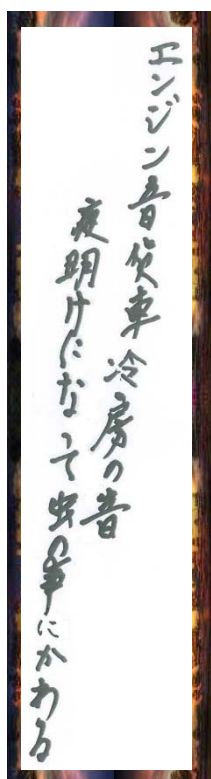 エンジン音貨車冷房の音
夜明けになって虫の事にかわる